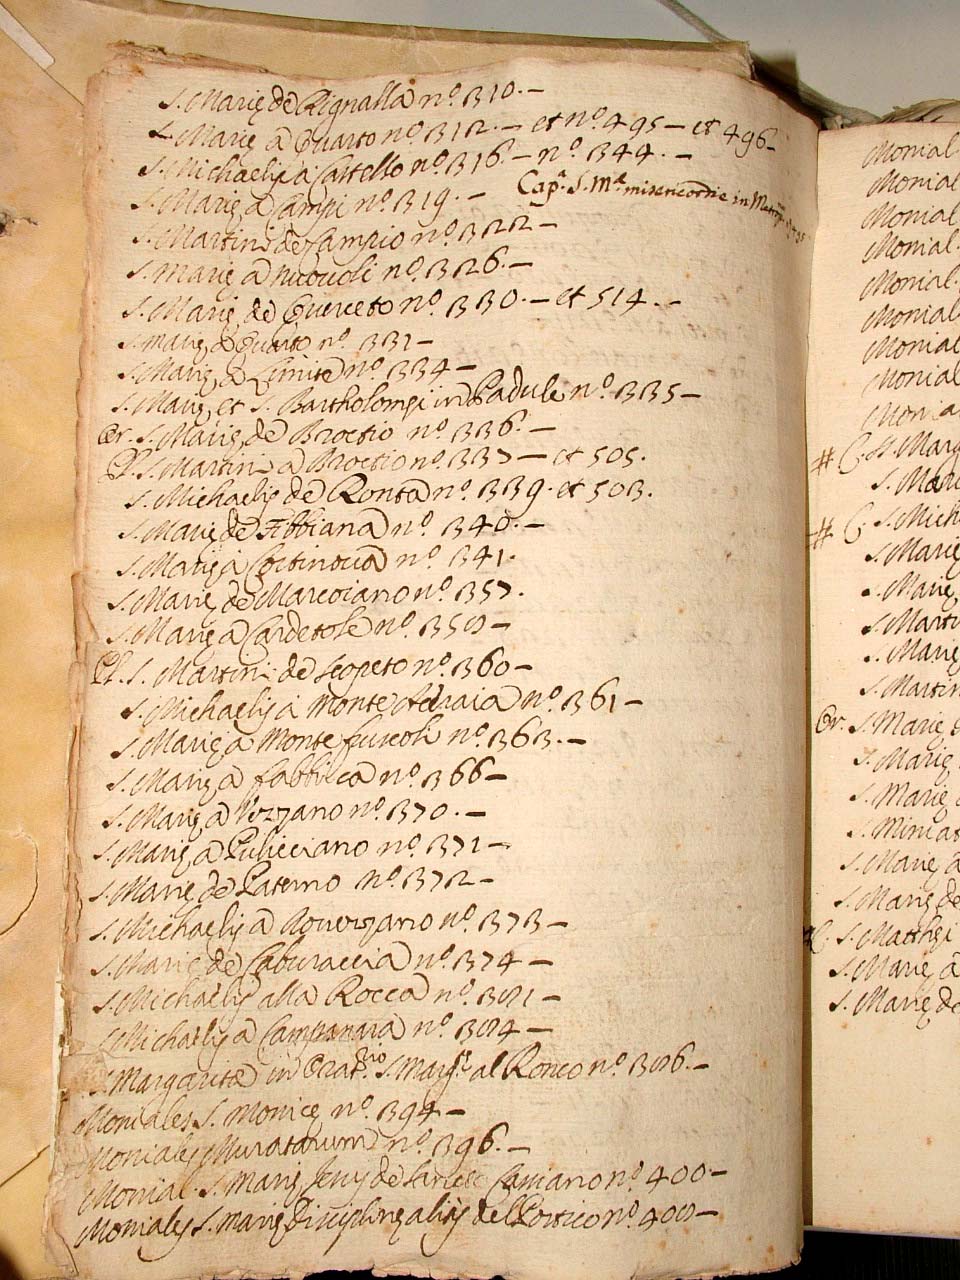 S. Marię de Rignalla nº. 310. —
S. Marię a Quarto nº. 312. — et nº. 495 — et 496 —
S. Michaelis a Castello nº. 316. — nº. 344. —
S. Marię a Campi nº. 319. — Cap.ª S. M.ª misericordie in
S. Martini de Campio nº. 322 —
S. Marię a Nuovoli nº. 326. —
S. Marię de Querceto nº. 330. — et 514. —
S. Marię a Quarto nº. 331 —
S. Marię a Limite nº. 334 —
S. Marię, et S. Bartholomęi in Padule nº. 335 —
Or. S. Marię de Broctio nº. 336. —
Pl. S. Martini a Broctio nº. 337 — et 505.
S. Michaelis de Ronta nº. 339. et 503.
S. Marię de Fibbiana nº. 340. —
S. Marię a Cortinova nº. 341.
S. Marię de Marcoiano nº. 357.
S. Marię a Cardetole nº. 358 —
Pl. S. Martini de Scopeto nº. 360 —
S. Michaelis a Monte Acuraia nº. 361 —
S. Marię a Monte fuscoli nº. 363. —
S. Marię a Fabbrica nº. 366 —
S. Marię a Vezzano nº. 370. —
S. Marię a Pulicciano nº. 371 —
S. Marię de Paterno nº. 372 —
S. Michaelis a Rovezzano nº. 373 —
S. Marię de Caburaccia nº. 374 —
S. Michaelis alla Rocca nº. 381 —
S. Michaelis a Campanara nº. 384 —
S. Margaritæ in Orat.rio S. Marg.te al Ronco nº. 386. —
Moniales S. Monicę nº. 394 —
Moniales Muratarum nº. 396. —
Monial. S. Marię de nº. 400 —
Moniales S. Marię Disciplinę alias del Portico nº. 408 —
Monial
Monial
Monial
Monial.
Monial.
Monial
Monial
Monial
Monia
# C. S. Marg
S. Mari
# C. S. Mich
S. Marię
S. Marię
S. Marti
S. Marię
S. Martin
Or. S. Marię
S. Marię
S. Marię
S. Miniat
S. Marię a
S. Marię de
C. S. Matthęi
S. Marię a
S. Marię de